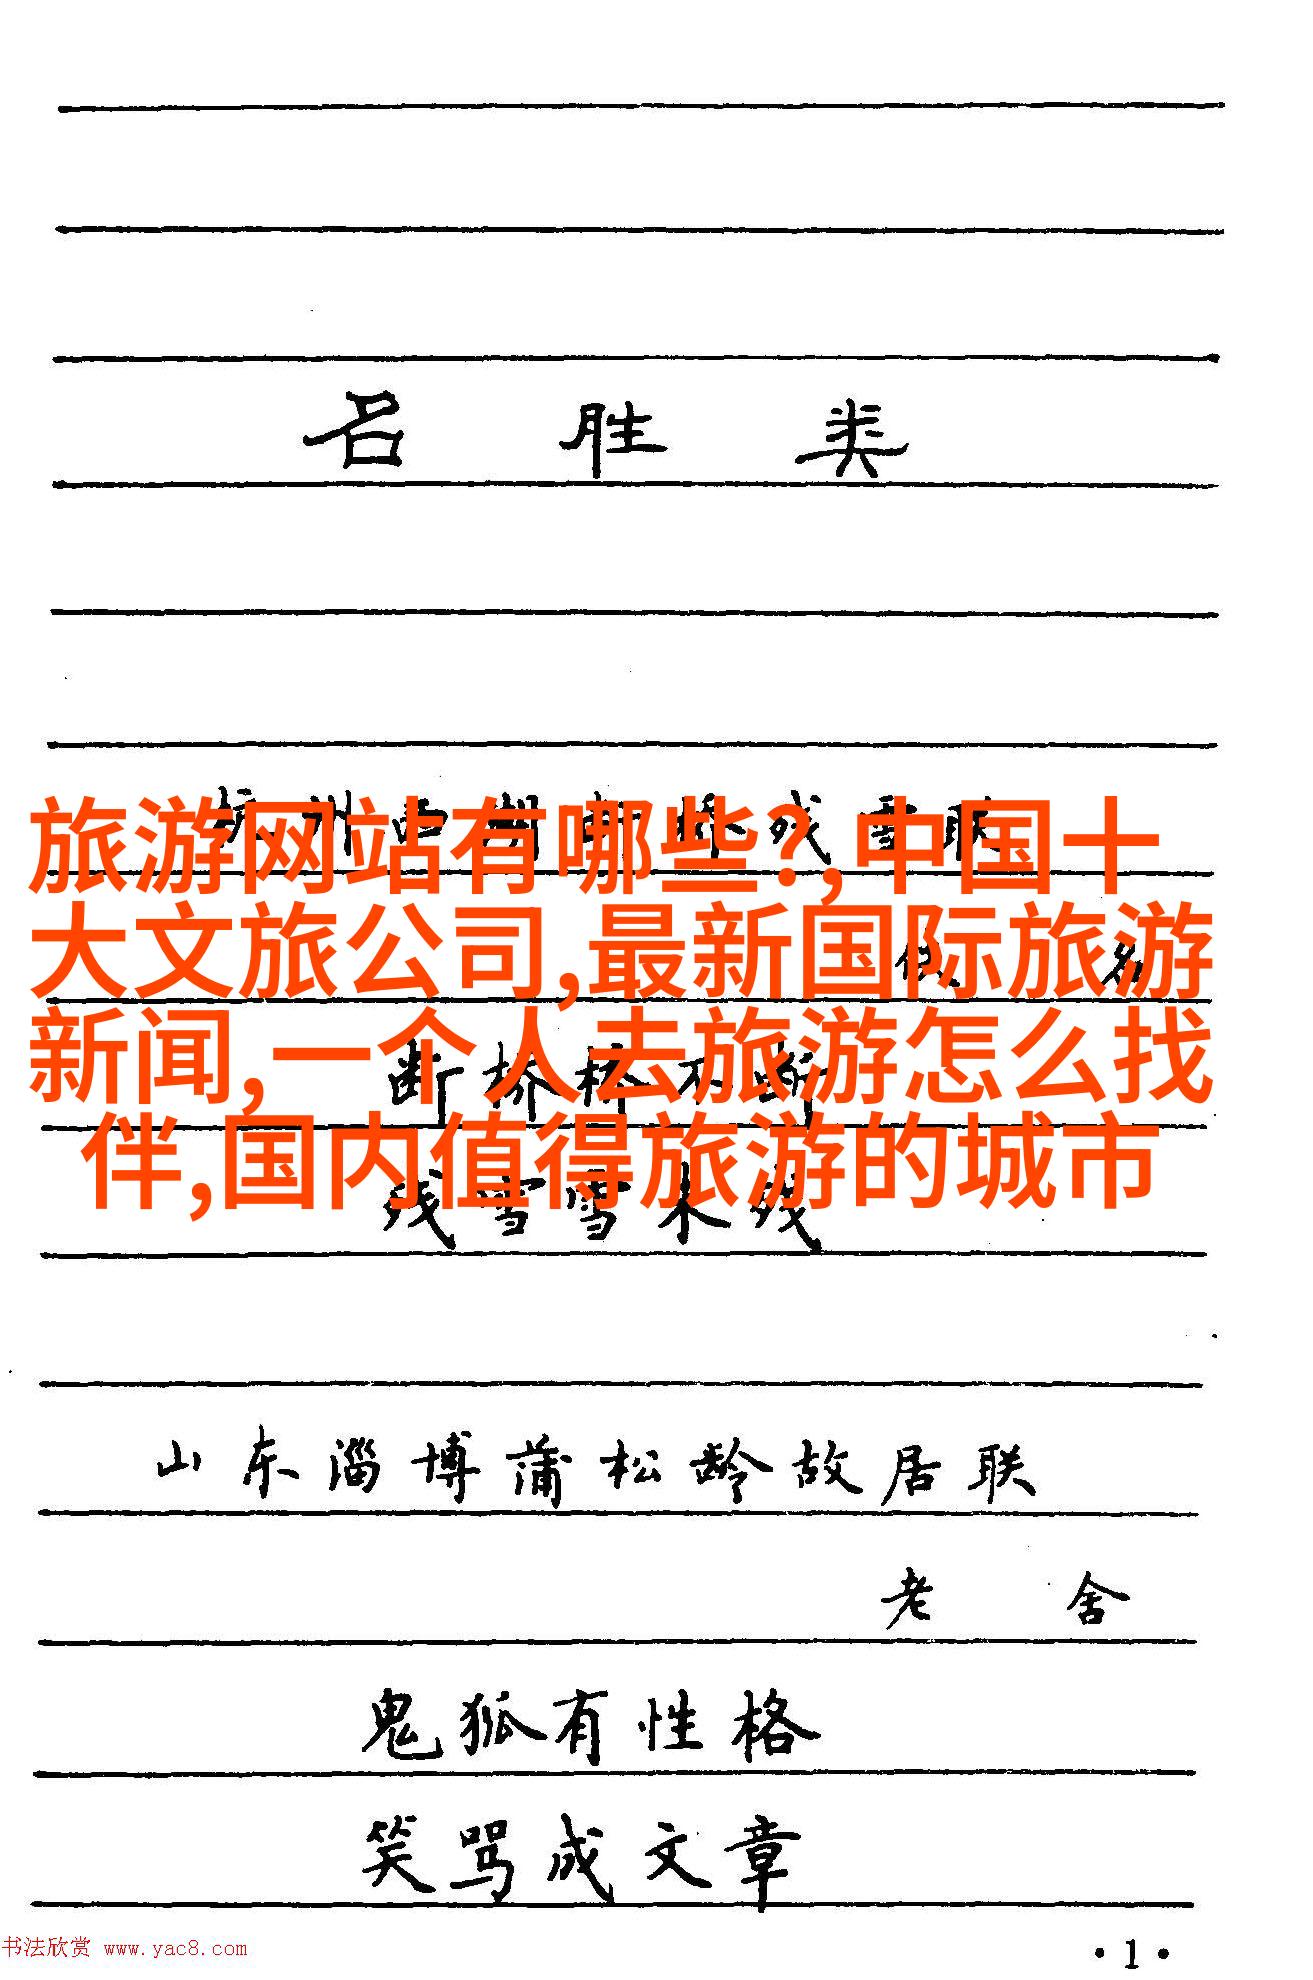 名胜类
杭州西湖断桥残雪联
旅游网站有哪些?,中国十
大文旅公司,最新国际旅游
佚名
新闻,一个人去旅游怎么找
断桥桥不断
伴,国内值得旅游的城市
残雪雪未残
山东淄博蒲松龄故居联
老舍
鬼狐有性格
笑骂成文章
书法欣赏 www.yac8.com
·1·